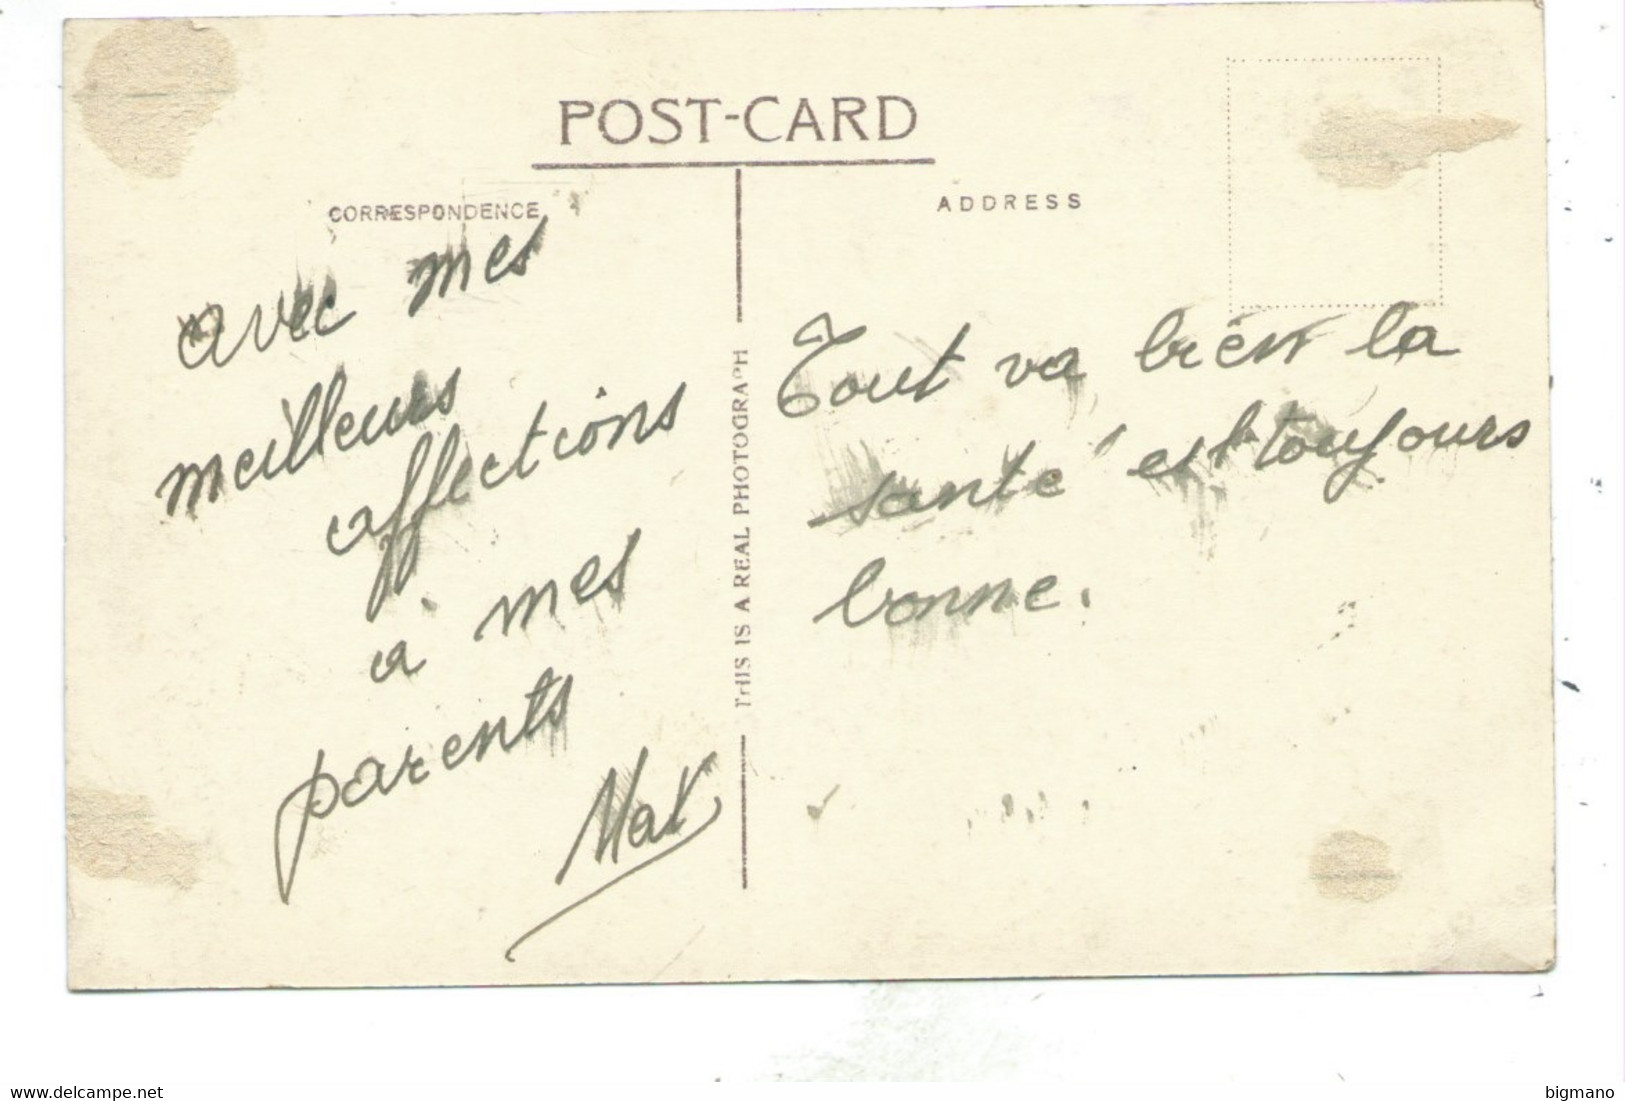 POST-CARD
CORRESPONDENCE
ADDRESS
avec mes
meilleurs
affections
à mes
parents
Max
THIS IS A REAL PHOTOGRAPH
Tout va bien la
santé est toujours
bonne.
www.delcampe.net
bigmano